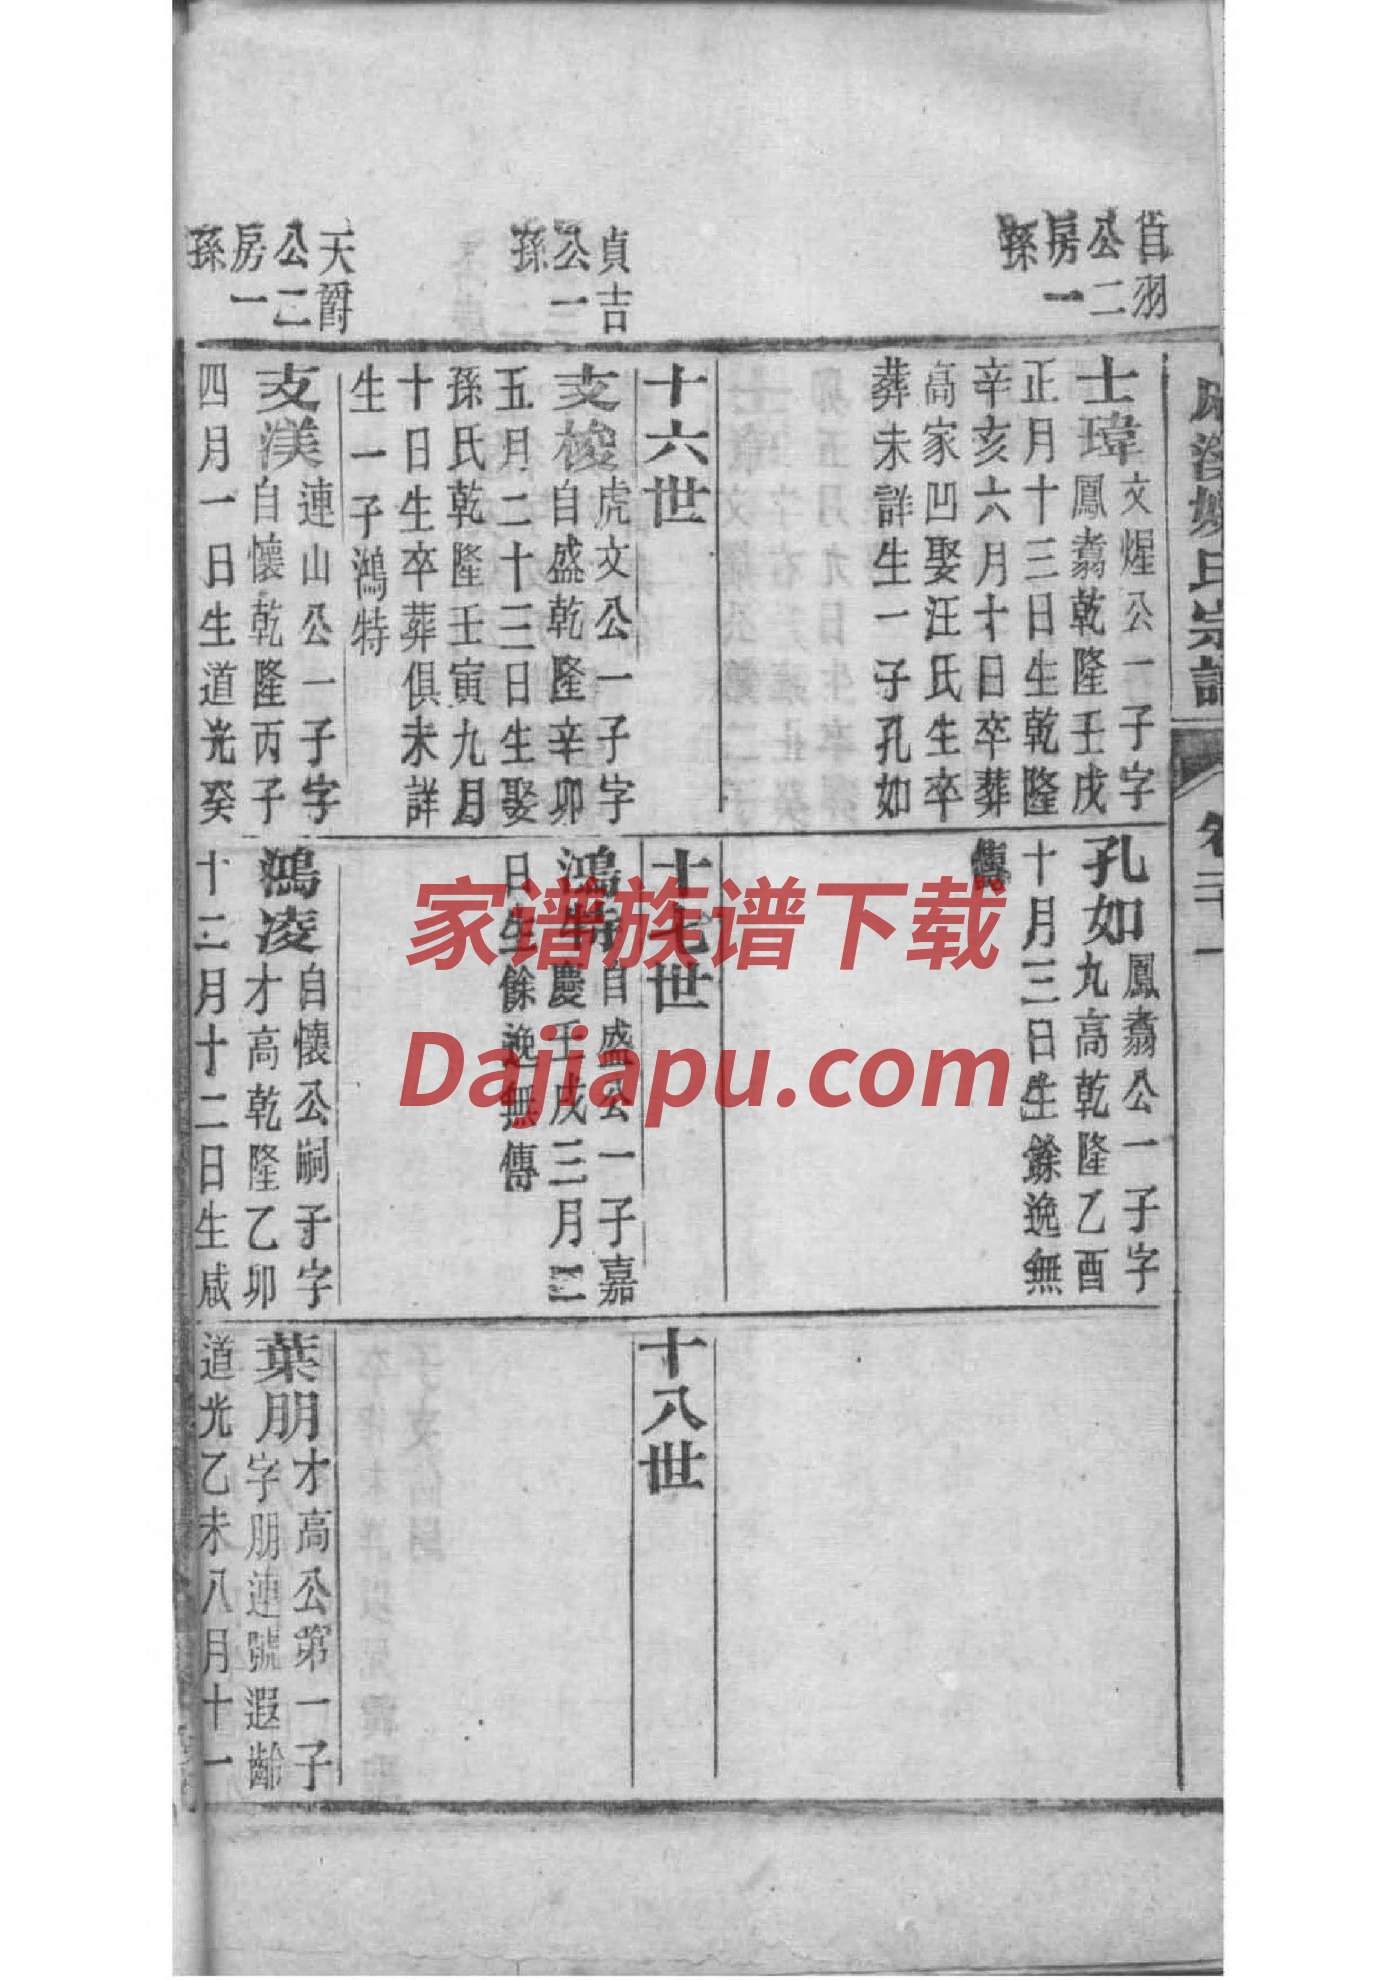 氏宗譜
卷二十一
公二
房一
孫
士瑋文煋公一子字
鳳翥乾隆壬戌
正月十三日生乾隆
辛亥六月十日卒葬
高家凹娶汪氏生卒
葬未詳生一子孔如
孔如鳳翥公一子字
九高乾隆乙酉
十月三日生餘逸無
傳
十六世
十七世
十八世
貞吉
公一
孫
支梭虎文公一子字
自盛乾隆辛卯
五月二十三日生娶
孫氏乾隆壬寅九月
十日生卒葬俱未詳
生一子鴻特
鴻特自盛公一子嘉
慶壬戌三月二
日生餘逸無傳
天爵
公二
房一
孫
支渼連山公一子字
自懷乾隆丙子
四月一日生道光癸
鴻凌自懷公嗣子字
才高乾隆乙卯
十二月十二日生咸
葉朋才高公第一子
字朋連號遐齡
道光乙未八月十一
家谱族谱下载
Dajiapu.com